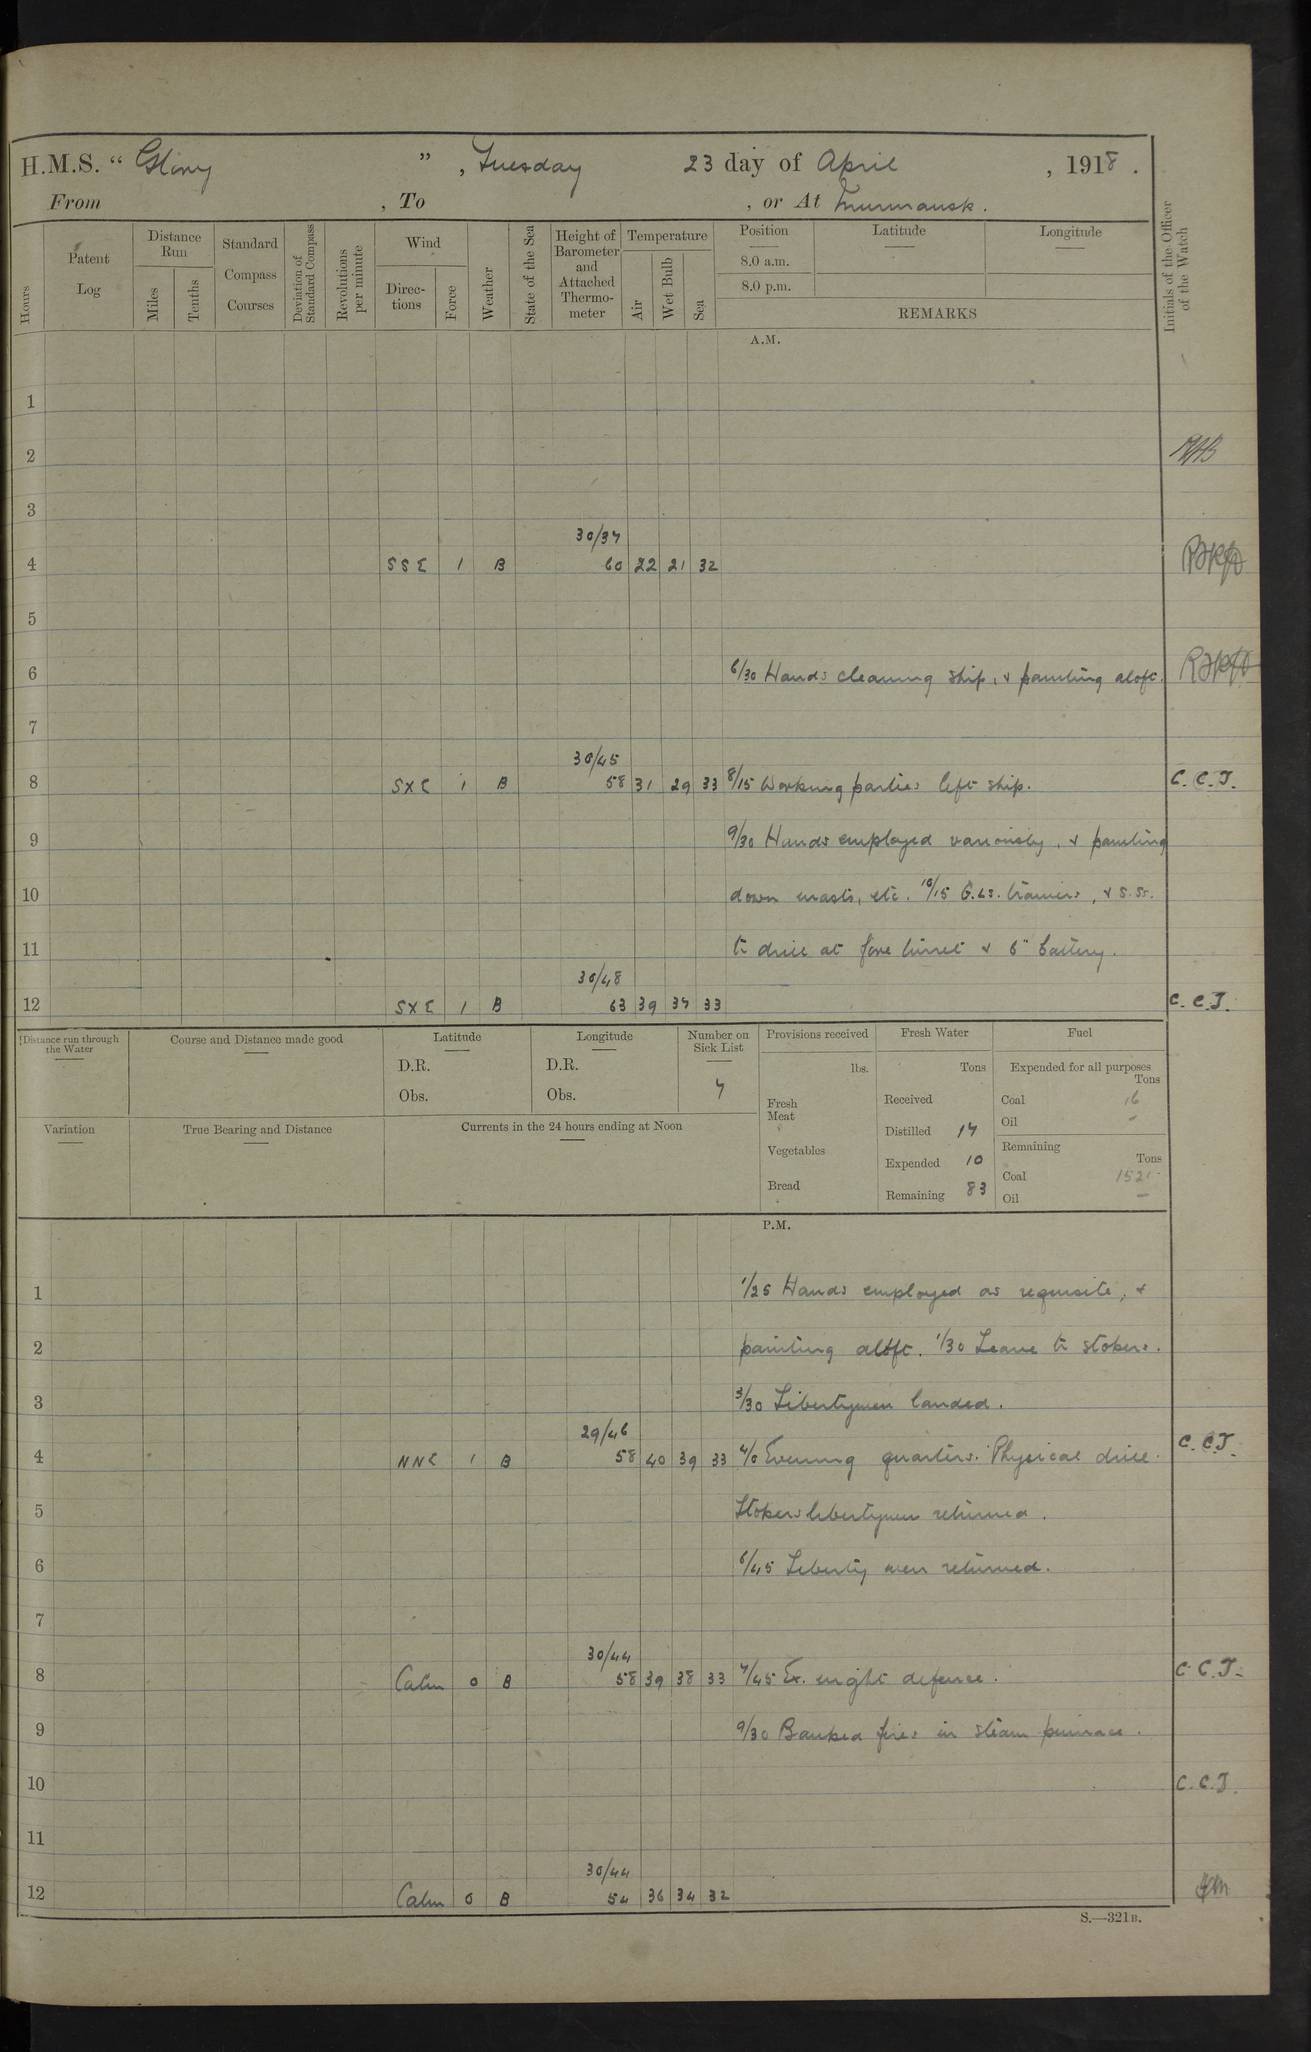 H.M.S. “ Glory ” , Tuesday 23 day of April , 1918 .
From , To , or At Murmansk .
Hours
Patent Log
Distance Run
Miles
Tenths
Standard Compass Courses
Deviation of Standard Compass
Revolutions per minute
Wind
Direc-tions
Force
Weather
State of the Sea
Height of Barometer and Attached Thermo-meter
Temperature
Air
Wet Bulb
Sea
Position
8.0 a.m.
8.0 p.m.
Latitude
Longitude
REMARKS
Initials of the Officer of the Watch
A.M.
1
2
3
30/37
4 SSE 1 B 60 22 21 32
5
6 6/30 Hands cleaning ship, & painting aloft.
7
30/45
8 SXE 1 B 58 31 29 33 8/15 Working parties left ship. C.C.J.
9 9/30 Hands employed variously, & painting
10 down masts, etc. 10/15 G.Ls. trainers, & S.Ss.
11 to drill at fore turret & 6" battery.
30/48
12 SXE 1 B 63 39 37 33 C.C.J.
Distance run through the Water
Course and Distance made good
Latitude
D.R.
Obs.
Longitude
D.R.
Obs.
Number on Sick List
7
Provisions received
lbs.
Fresh Meat
Vegetables
Bread
Fresh Water
Tons
Received
Distilled 17
Expended 10
Remaining 83
Fuel
Expended for all purposes
Tons
Coal 16
Oil –
Remaining
Tons
Coal 1521
Oil –
Variation
True Bearing and Distance
Currents in the 24 hours ending at Noon
P.M.
1 1/25 Hands employed as requisite, &
2 painting aloft. 1/30 Leave to stokers.
3 3/30 Libertymen landed.
29/46
4 NNE 1 B 58 40 39 33 4/0 Evening quarters. Physical drill. C.C.J.
5 Stokers libertymen returned.
6 6/45 Liberty men returned.
7
30/44
8 Calm 0 B 58 39 38 33 7/45 Ex. night defence. C.C.J.
9 9/30 Banked fires in steam pinnace.
10 C.C.J.
11
30/44
12 Calm 0 B 54 36 34 32
S.—321B.